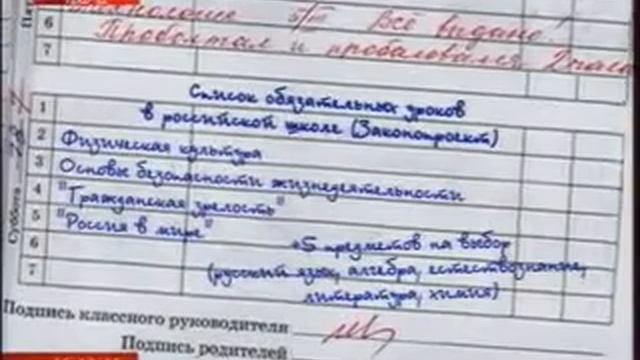 6 5/III Всё выдано!
7 Проболтал и пробаловался 2 часа
1 Список обязательных уроков
в российской школе (Законопроект)
2 Физическая культура
3 Основы безопасности жизнедеятельности
4 "Гражданская зрелость"
5 "Россия в мире"
6 +5 предметов на выбор
7 (русский язык, алгебра, естествознание,
литература, химия)
Суббота
Подпись классного руководителя
Подпись родителей